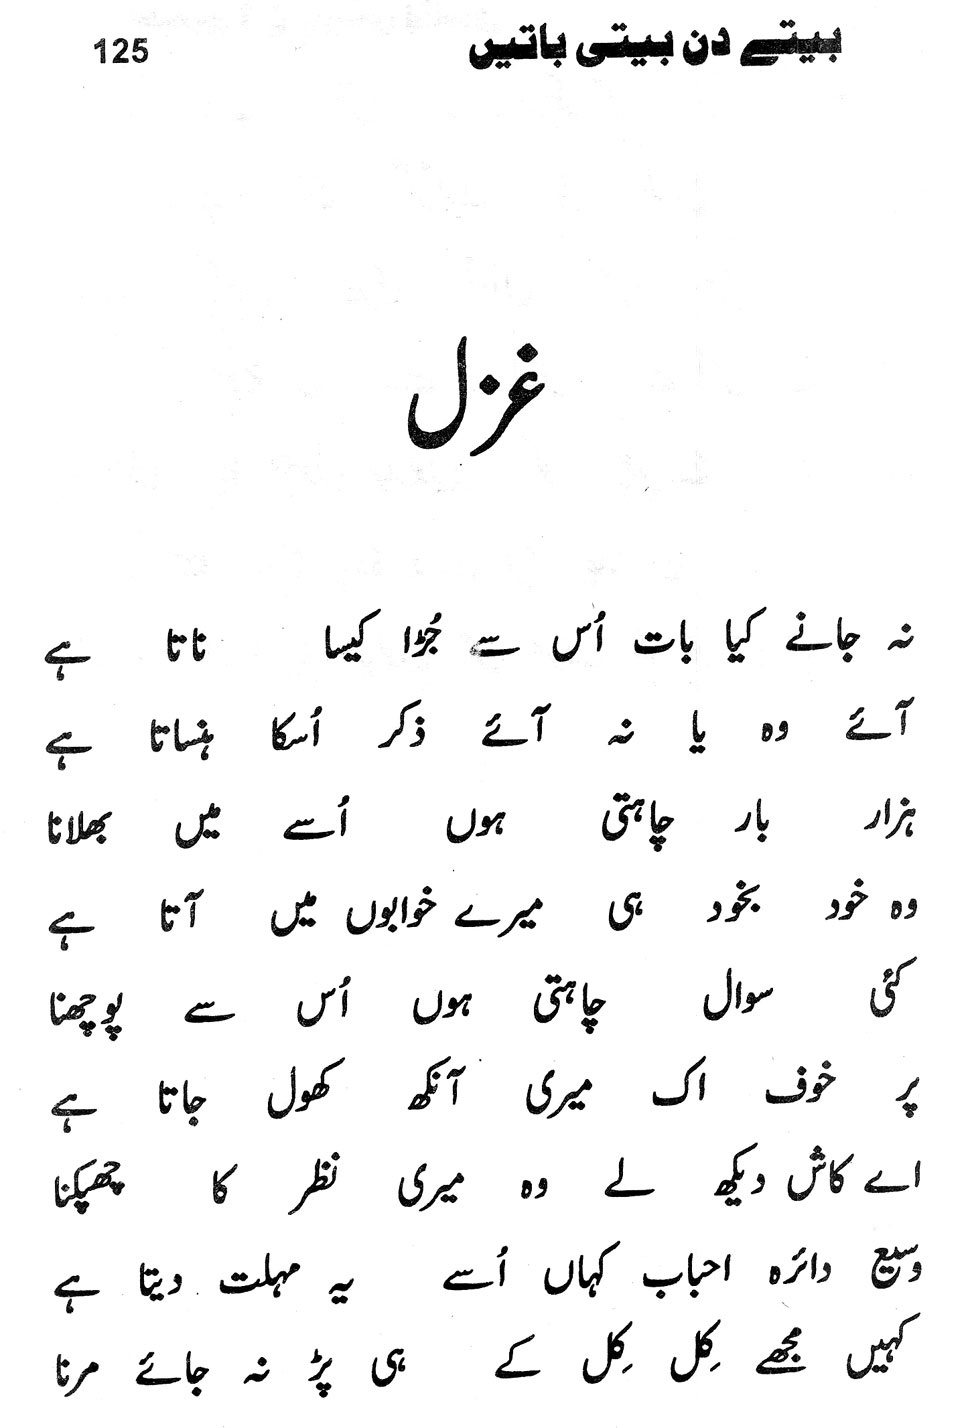 بیتے دن بیتی باتیں 125
غزل
نہ جانے کیا بات اُس سے جُڑا کیسا ناتا ہے
آئے وہ یا نہ آئے ذکر اُسکا ہنساتا ہے
ہزار بار چاہتی ہوں اُسے میں بھلانا
وہ خود بخود ہی میرے خوابوں میں آتا ہے
کئی سوال چاہتی ہوں اُس سے پوچھنا
پر خوف اک میری آنکھ کھول جاتا ہے
اے کاش دیکھ لے وہ میری نظر کا چھپکنا
وسیع دائرہ احباب کہاں اُسے یہ مہلت دیتا ہے
کہیں مجھے کِل کِل کے ہی پڑ نہ جائے مرنا